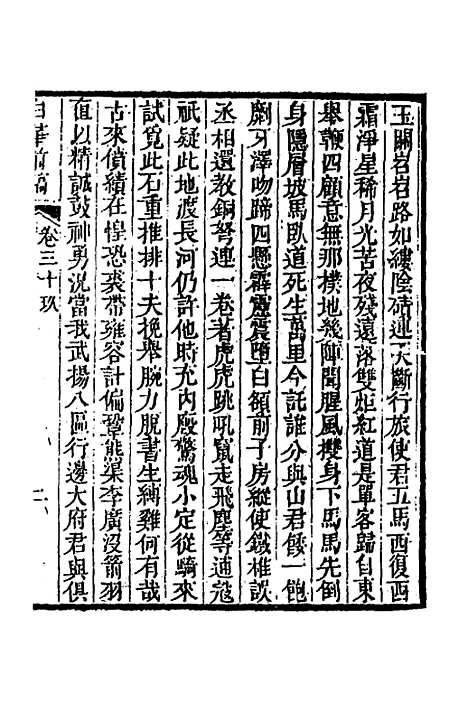 玉關岧岧路如縷陰磧連天斷行旅使君五馬西復西
霜淨星稀月光苦夜殘遠落雙炬紅道是單客歸自東
舉鞭四顧意無那撲地幾陣聞腥風攫身下馬馬先倒
身隱層坡馬臥道死生萬里今託誰分與山君餧一飽
劘牙澤吻蹄四懸霹靂震墮白額前子房縱使鐵椎誤
丞相還教銅弩連一卷者虎虎跳吼竄走飛塵等逋寇
祇疑此地渡長河仍許他時充內廄驚魂小定從騎來
試覓此石重推排十夫挽舉腕力脫書生縛雞何有哉
古來僨績在惶恐裘帶雍容計偏鞏熊渠李廣沒箭羽
值以精誠鼓神勇況當我武揚八區行邊大府君與俱
白華前稿
卷三十玖
二